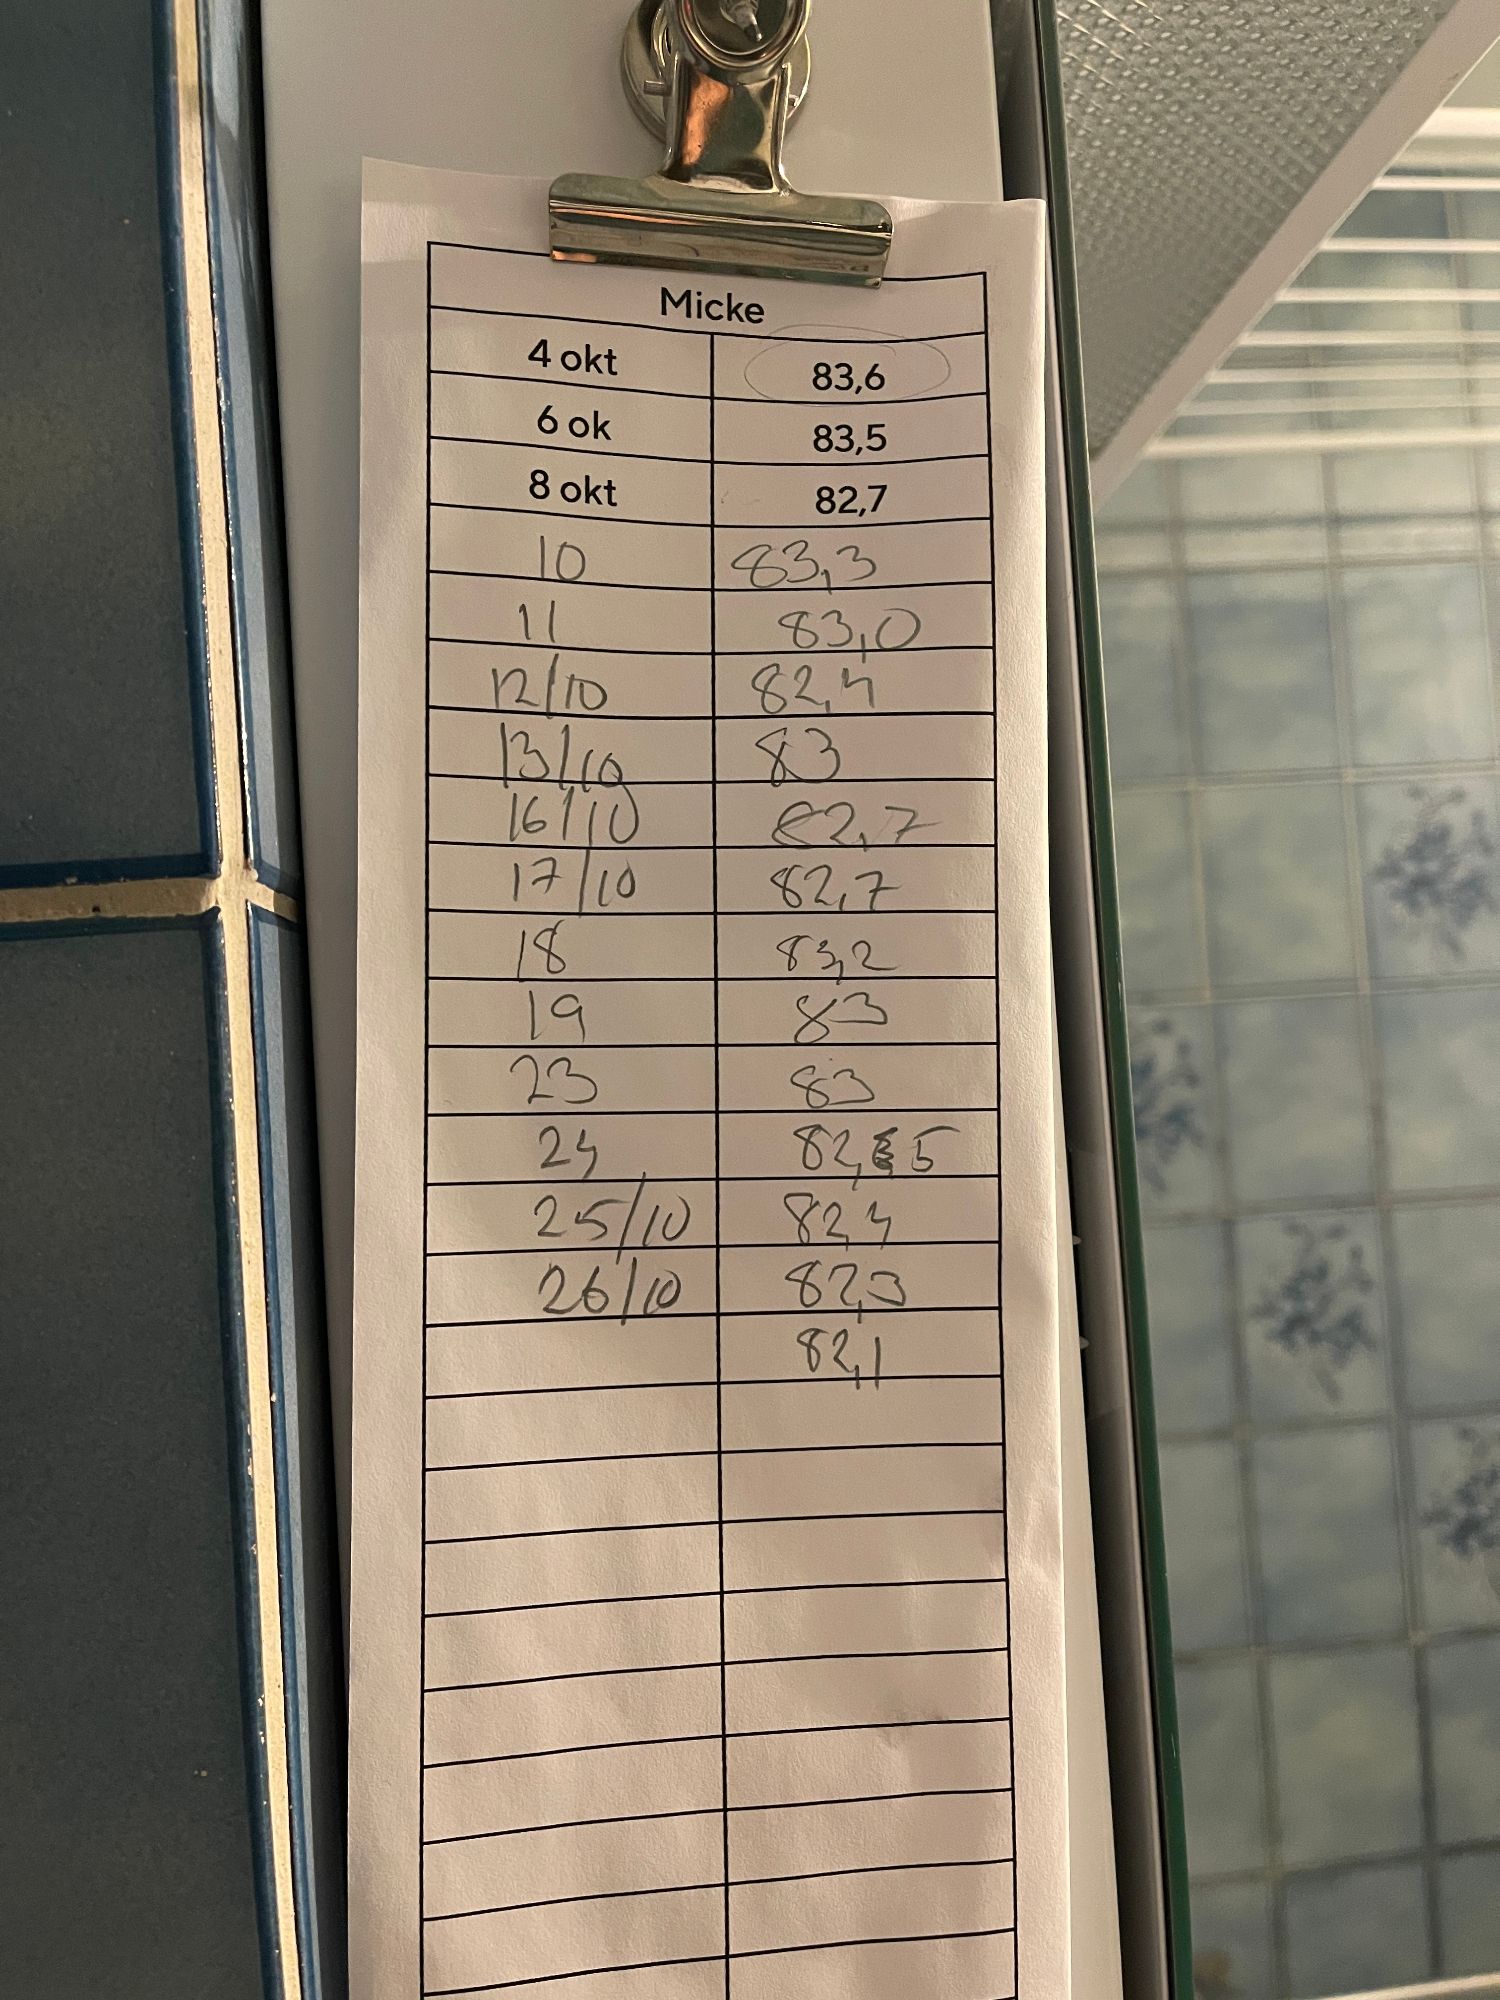 Micke
4 okt 83,6
6 ok 83,5
8 okt 82,7
10 83,3
11 83,0
12/10 82,4
13/10 83
16/10 82,7
17/10 82,7
18 83,2
19 83
23 83
24 82,5
25/10 82,4
26/10 82,3
82,1